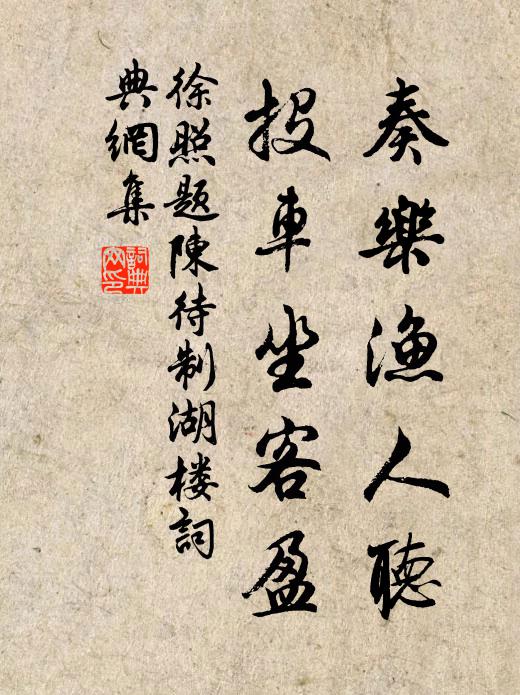 奏樂漁人聽
投車坐客盈
徐照题陳待制湖楼詞
典網集
詞典網印